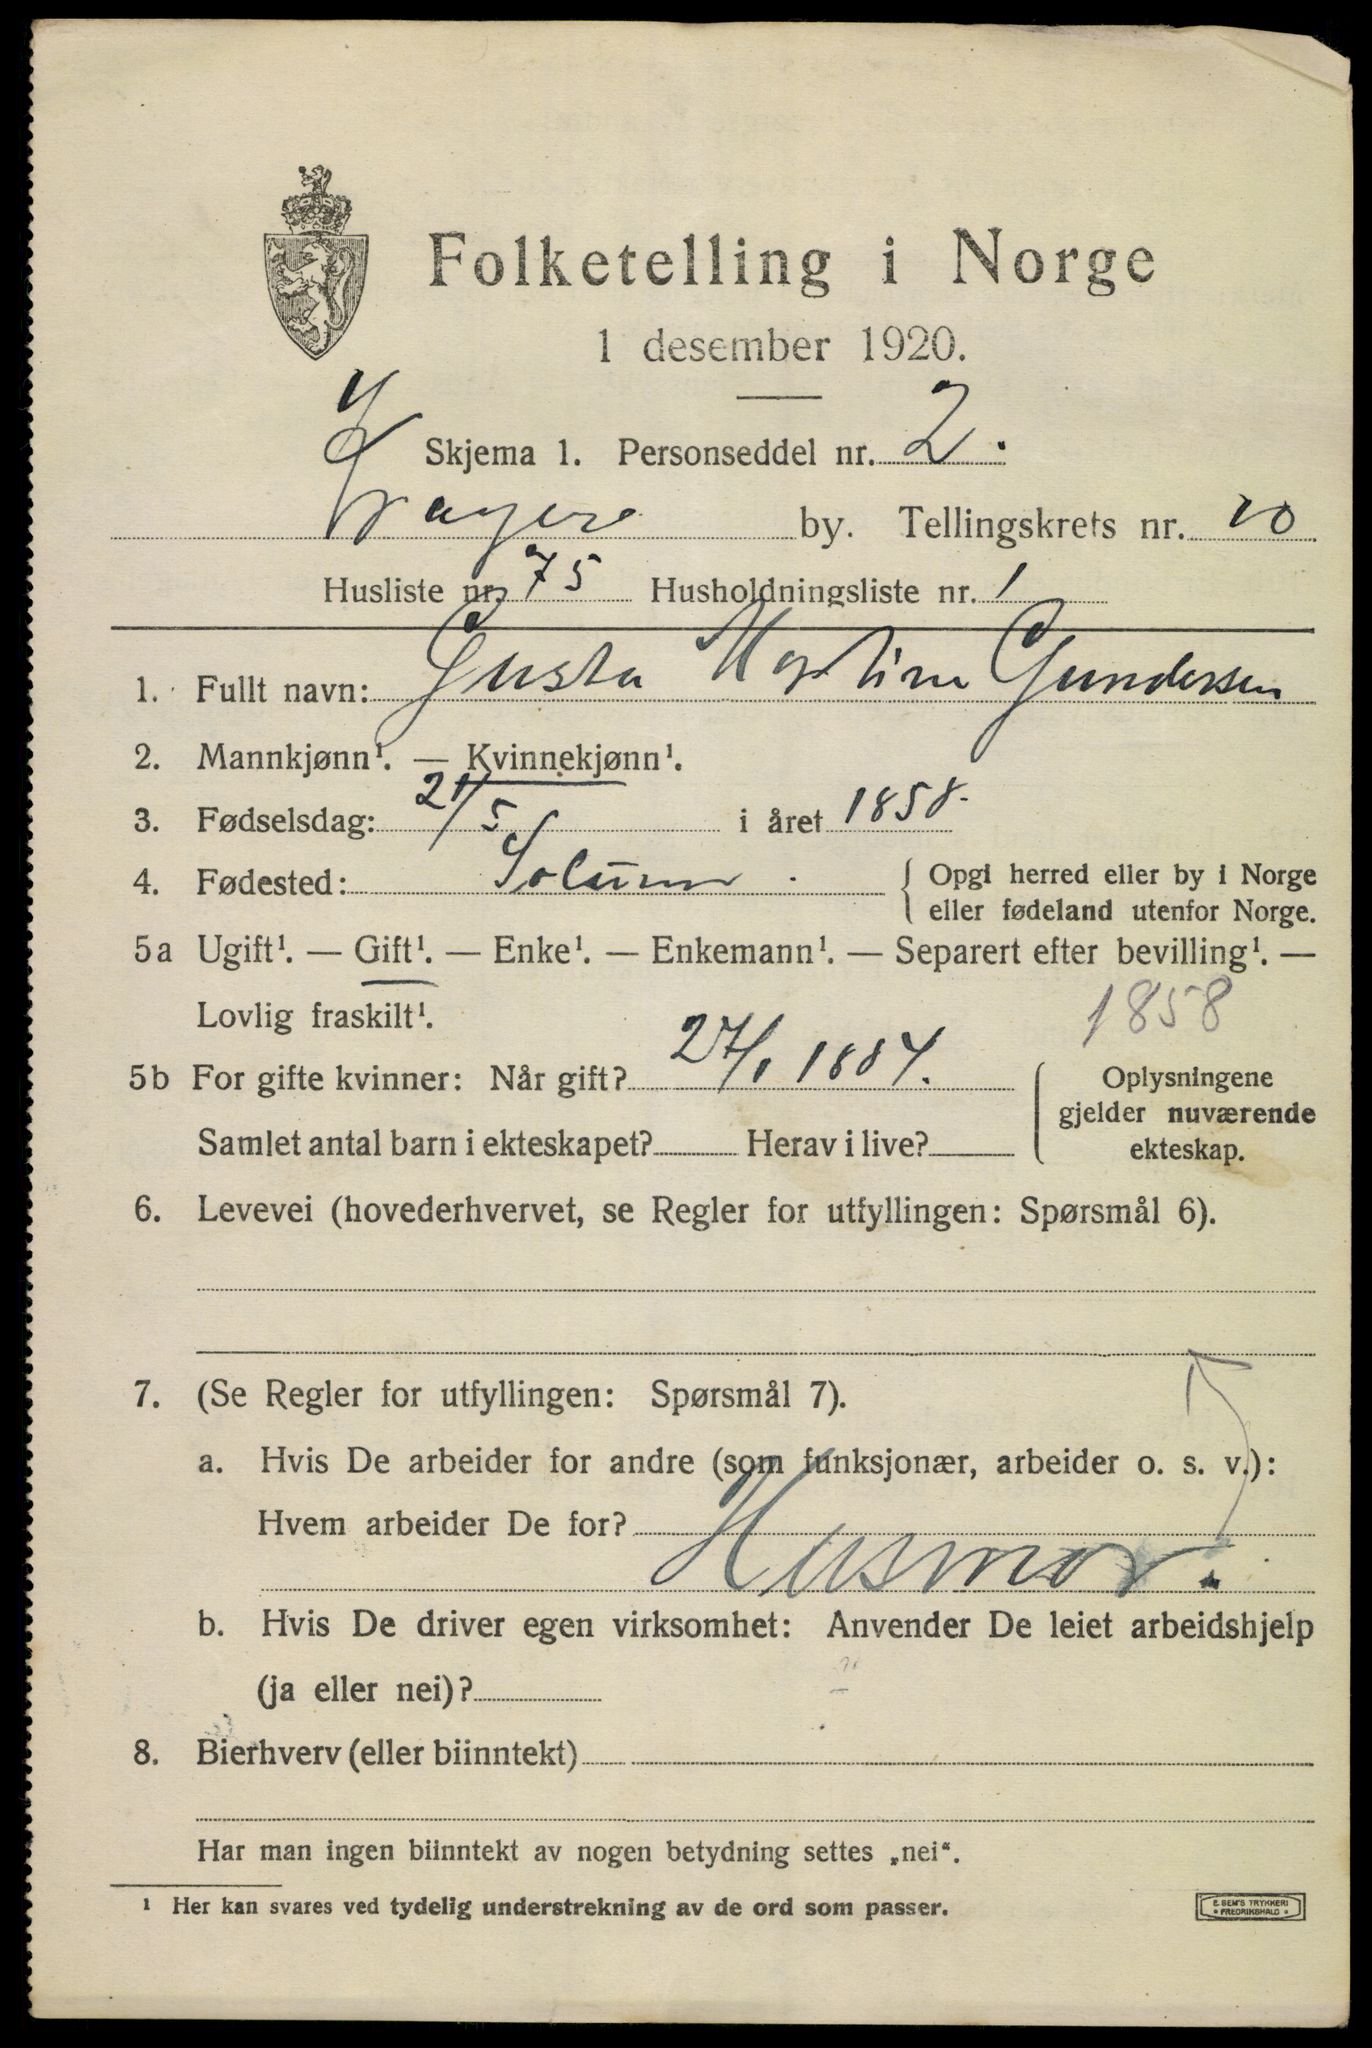 Folketelling i Norge
1 desember 1920.
Skjema 1. Personseddel nr. 2.
Kragerø by. Tellingskrets nr. 20
Husliste nr. 75 Husholdningsliste nr. 1
1. Fullt navn: Gusta Martine Gundersen
2. Mannkjønn¹. — Kvinnekjønn¹.
3. Fødselsdag: 21/5 i året 1858.
4. Fødested: Solum. { Opgi herred eller by i Norge
eller fødeland utenfor Norge.
5a Ugift¹. — Gift¹. — Enke¹. — Enkemann¹. — Separert efter bevilling¹. —
Lovlig fraskilt¹.
1858
5b For gifte kvinner: Når gift? 27/1 1884. { Oplysningene
gjelder nuværende
Samlet antal barn i ekteskapet? Herav i live? ekteskap.
6. Levevei (hovederhvervet, se Regler for utfyllingen: Spørsmål 6).
7. (Se Regler for utfyllingen: Spørsmål 7).
a. Hvis De arbeider for andre (som funksjonær, arbeider o. s. v.):
Hvem arbeider De for?
Husmor.
b. Hvis De driver egen virksomhet: Anvender De leiet arbeidshjelp
(ja eller nei)?
8. Bierhverv (eller biinntekt)
Har man ingen biinntekt av nogen betydning settes „nei“.
¹ Her kan svares ved tydelig understrekning av de ord som passer.
E. SEM'S TRYKKERI
* FREDRIKSHALD *